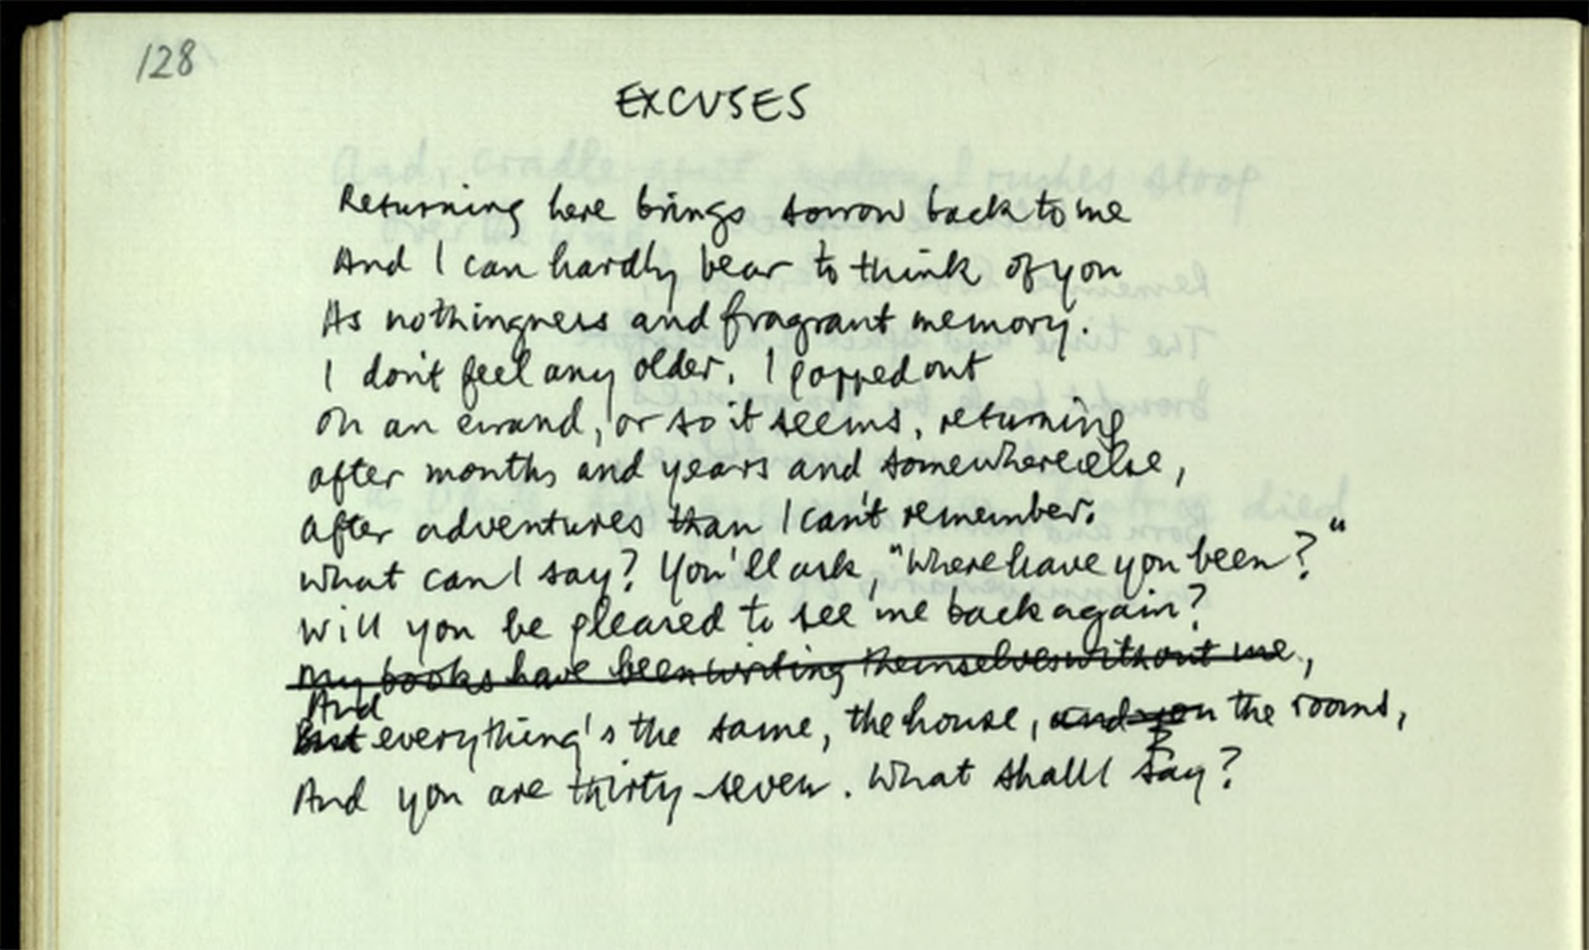 128
EXCUSES
Returning here brings sorrow back to me
And I can hardly bear to think of you
As nothingness and fragrant memory.
I don't feel any older. I popped out
On an errand, or so it seems, returning
after months and years and somewhere else,
after adventures than I can't remember.
What can I say? You'll ask, "Where have you been?"
Will you be pleased to see me back again?
My books have been writing themselves without me,
And
But everything's the same, the house, and you the rooms,
And you are thirty-seven. What shall I say?